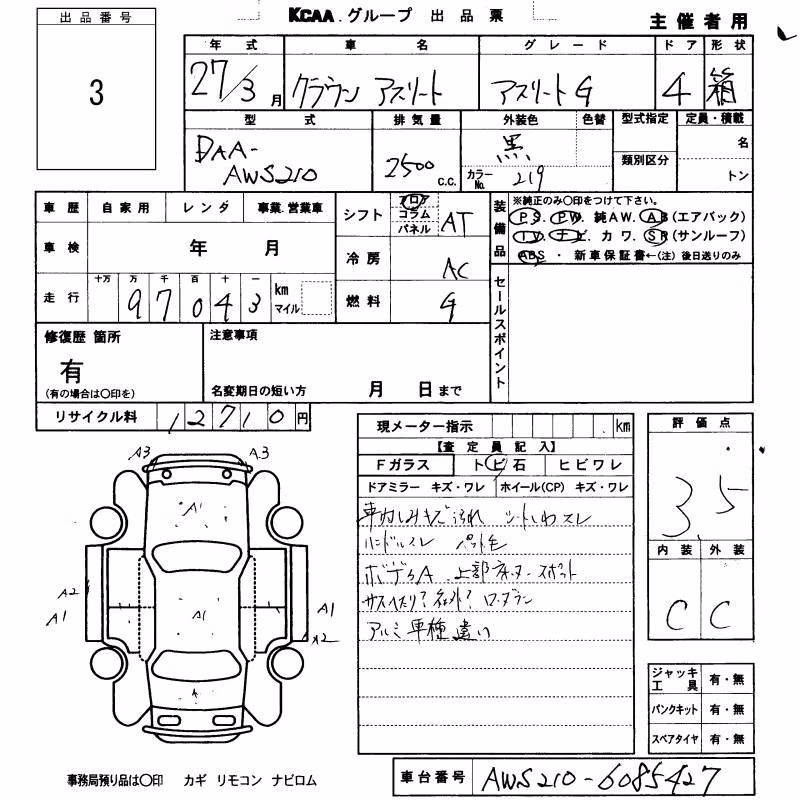 KCAA.グループ 出品票
主催者用
出品番号
3
年式 車名 グレード ドア 形状
27/3月 クラウン アスリート アスリートG 4 箱
型式 排気量 外装色 色替 型式指定 定員・積載
DAA-AWS210 2500 C.C. 黒 カラーNo. 219 類別区分 名 トン
車歴 自家用 レンタ 事業.営業車
車検 年 月
走行 十万 万 千 百 十 一 km マイル
97043
シフト フロア コラム パネル AT
冷房 AC
燃料 G
装備品
※純正のみ○印をつけて下さい。
PS. PW. 純AW. AB(エアバック)
TV. ナビ. カワ. SR(サンルーフ)
ABS ・ 新車保証書←(注)後日送りのみ
セールスポイント
修復歴 箇所
有
(有の場合は○印を)
注意事項
名変期日の短い方 月 日まで
リサイクル料 12710円
現メーター指示 km
【査定員記入】
Fガラス トビ石 ヒビワレ
ドアミラー キズ・ワレ ホイール(CP) キズ・ワレ
車内しみキズ汚れ シートしわスレ
ハンドルスレ
ボデーA 上部
アルミ車種違い
評価点
3.5
内装 外装
C C
A3 A3
A1
A2
A1 A1 A1
A2
ジャッキ工具 有・無
パンクキット 有・無
スペアタイヤ 有・無
事務局預り品は○印 カギ リモコン ナビロム
車台番号 AWS210-6085427